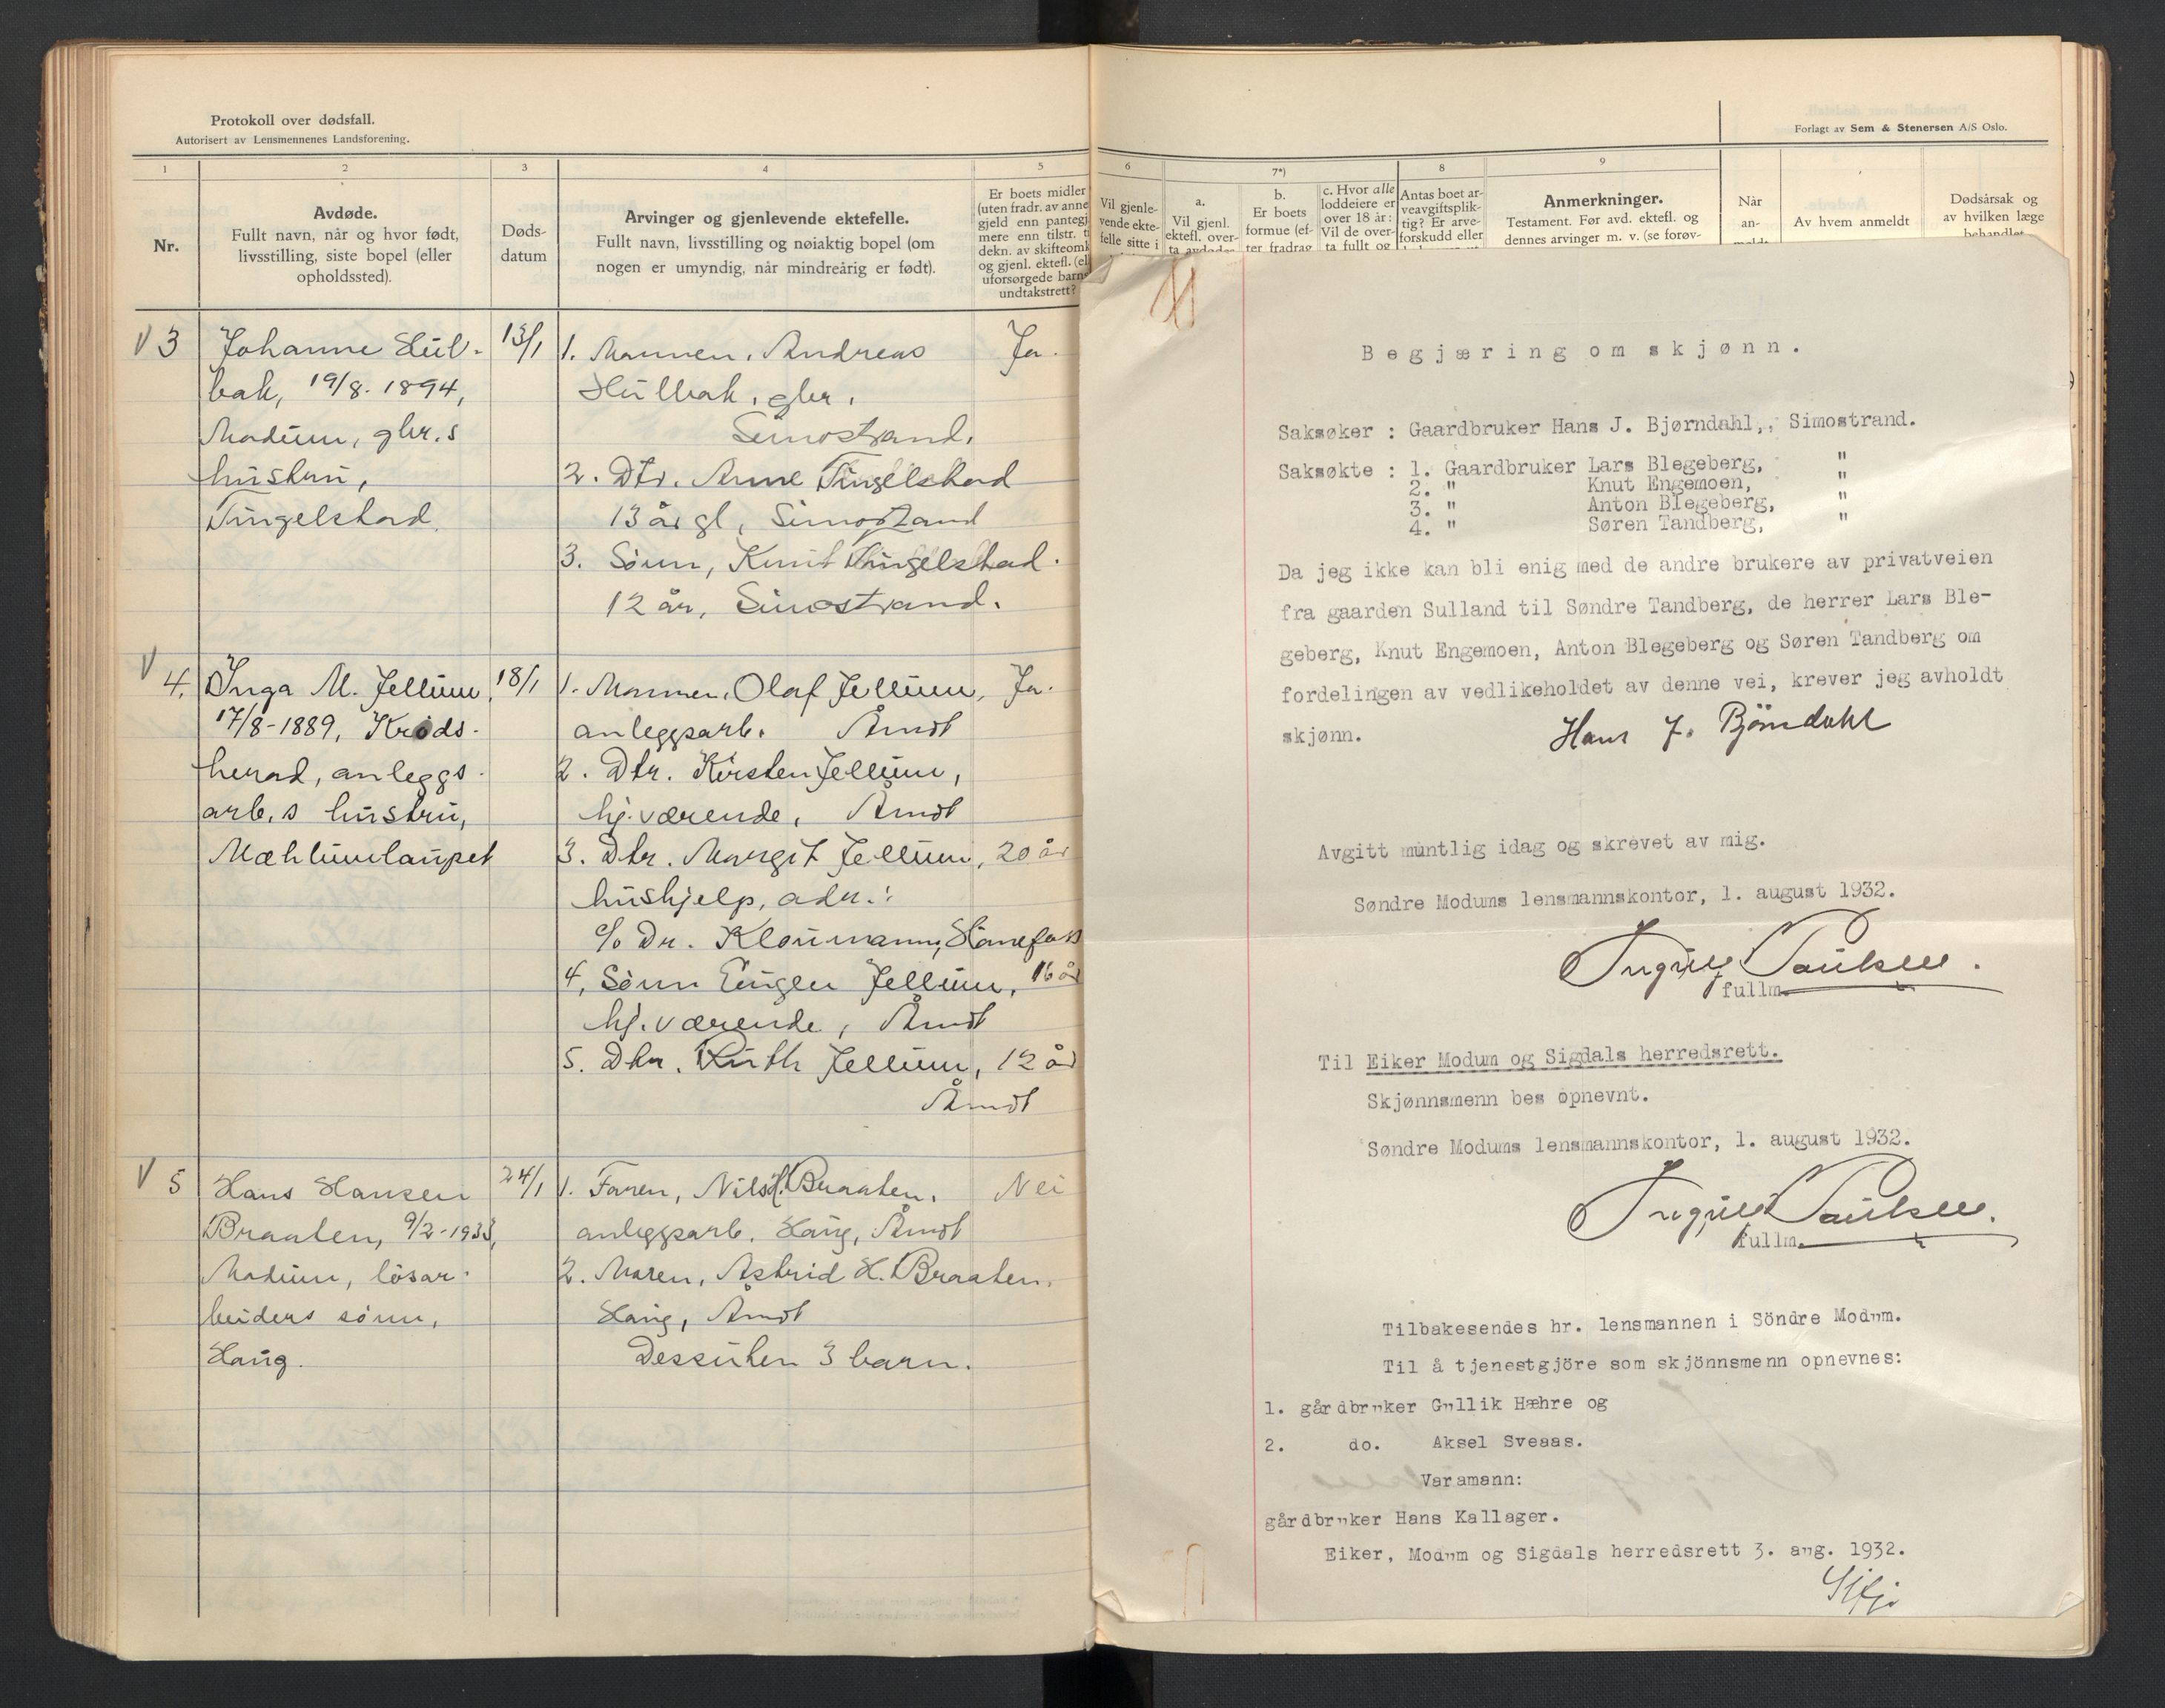 Protokoll over dødsfall.
Autorisert av Lensmennenes Landsforening.
1
2
3
4
5
Nr.
Avdøde.
Fullt navn, når og hvor født,
livsstilling, siste bopel (eller
opholdssted).
Døds-
datum
Arvinger og gjenlevende ektefelle.
Fullt navn, livsstilling og nøiaktig bopel (om
nogen er umyndig, når mindreårig er født).
Er boets midler
(uten fradr. av anne
gjeld enn pantegj
mere enn tilstr. t
dekn. av skifteomk
og gjenl. ektefl. (el
uforsørgede barns
undtakstrett?
V 3
Johanne Hul-
bak, 19/8. 1894,
Modum, gbr.s
hustru,
Tingelstad.
13/1
1. Mannen, Andreas
Hulbak, gbr,
Simostrand.
2. Dtr. Anne Tingelstad
13 år gl, Simostrand
3. Sønn, Knut Tingelstad.
12 år, Simostrand.
Ja.
V 4,
Inga M. Jellum,
17/8-1889, Krøds-
herad, anleggs-
arb.s hustru,
Mæhlumlaupet
18/1
1. Mannen, Olaf Jellum,
anleggsarb. Åmot
2. Dtr. Kirsten Jellum,
hj.værende, Åmot
3. Dtr. Margit Jellum, 20 år
hushjelp, adr.:
c/o Dr. Kloumann, Hønefoss
4, Sønn Eugen Jellum, 16 år
hj.værende, Åmot
5. Dtr. Ruth Jellum, 12 år
Åmot
Ja.
V 5
Hans Hansen
Braaten, 9/2-1933,
Modum, løsar-
beiders sønn,
Haug.
24/1
1. Faren, Nils H. Braaten,
anleggsarb. Haug, Åmot
2. Moren, Astrid H. Braaten.
Haug, Åmot
Dessuten 3 barn.
Nei
Forlagt av Sem & Stenersen A/S Oslo.
6
7*)
8
9
Vil gjenle-
vende ekte-
felle sitte i
a.
Vil gjenl.
ektefl. over-
ta avdødes
b.
Er boets
formue (ef-
ter fradrag
c. Hvor alle
loddeiere er
over 18 år:
Vil de over-
ta fullt og
Antas boet ar-
veavgiftsplik-
tig? Er arve-
forskudd eller
Anmerkninger.
Testament. Før avd. ektefl. og
dennes arvinger m. v. (se forøv-
Når
an-
meldt
Av hvem anmeldt
Dødsårsak og
av hvilken læge
behandlet
Begjæring om skjønn.
Saksøker : Gaardbruker Hans J. Bjørndahl,, Simostrand.
Saksøkte : 1. Gaardbruker Lars Blegeberg, "
2. " Knut Engemoen, "
3. " Anton Blegeberg, "
4. " Søren Tandberg, "
Da jeg ikke kan bli enig med de andre brukere av privatveien
fra gaarden Sulland til Søndre Tandberg, de herrer Lars Ble-
geberg, Knut Engemoen, Anton Blegeberg og Søren Tandberg om
fordelingen av vedlikeholdet av denne vei, krever jeg avholdt
skjønn.
Hans J. Bjørndahl
Avgitt muntlig idag og skrevet av mig.
Søndre Modums lensmannskontor, 1. august 1932.
Paulsen.
fullm.
Til Eiker Modum og Sigdals herredsrett.
Skjønnsmenn bes opnevnt.
Søndre Modums lensmannskontor, 1. august 1932.
Paulsen.
fullm.
Tilbakesendes hr. lensmannen i Söndre Modum.
Til å tjenestgjöre som skjönnsmenn opnevnes:
1. gårdbruker Gullik Hæhre og
2. do. Aksel Sveaas.
Varamann:
gårdbruker Hans Kallager.
Eiker, Modum og Sigdals herredsrett 3. aug. 1932.